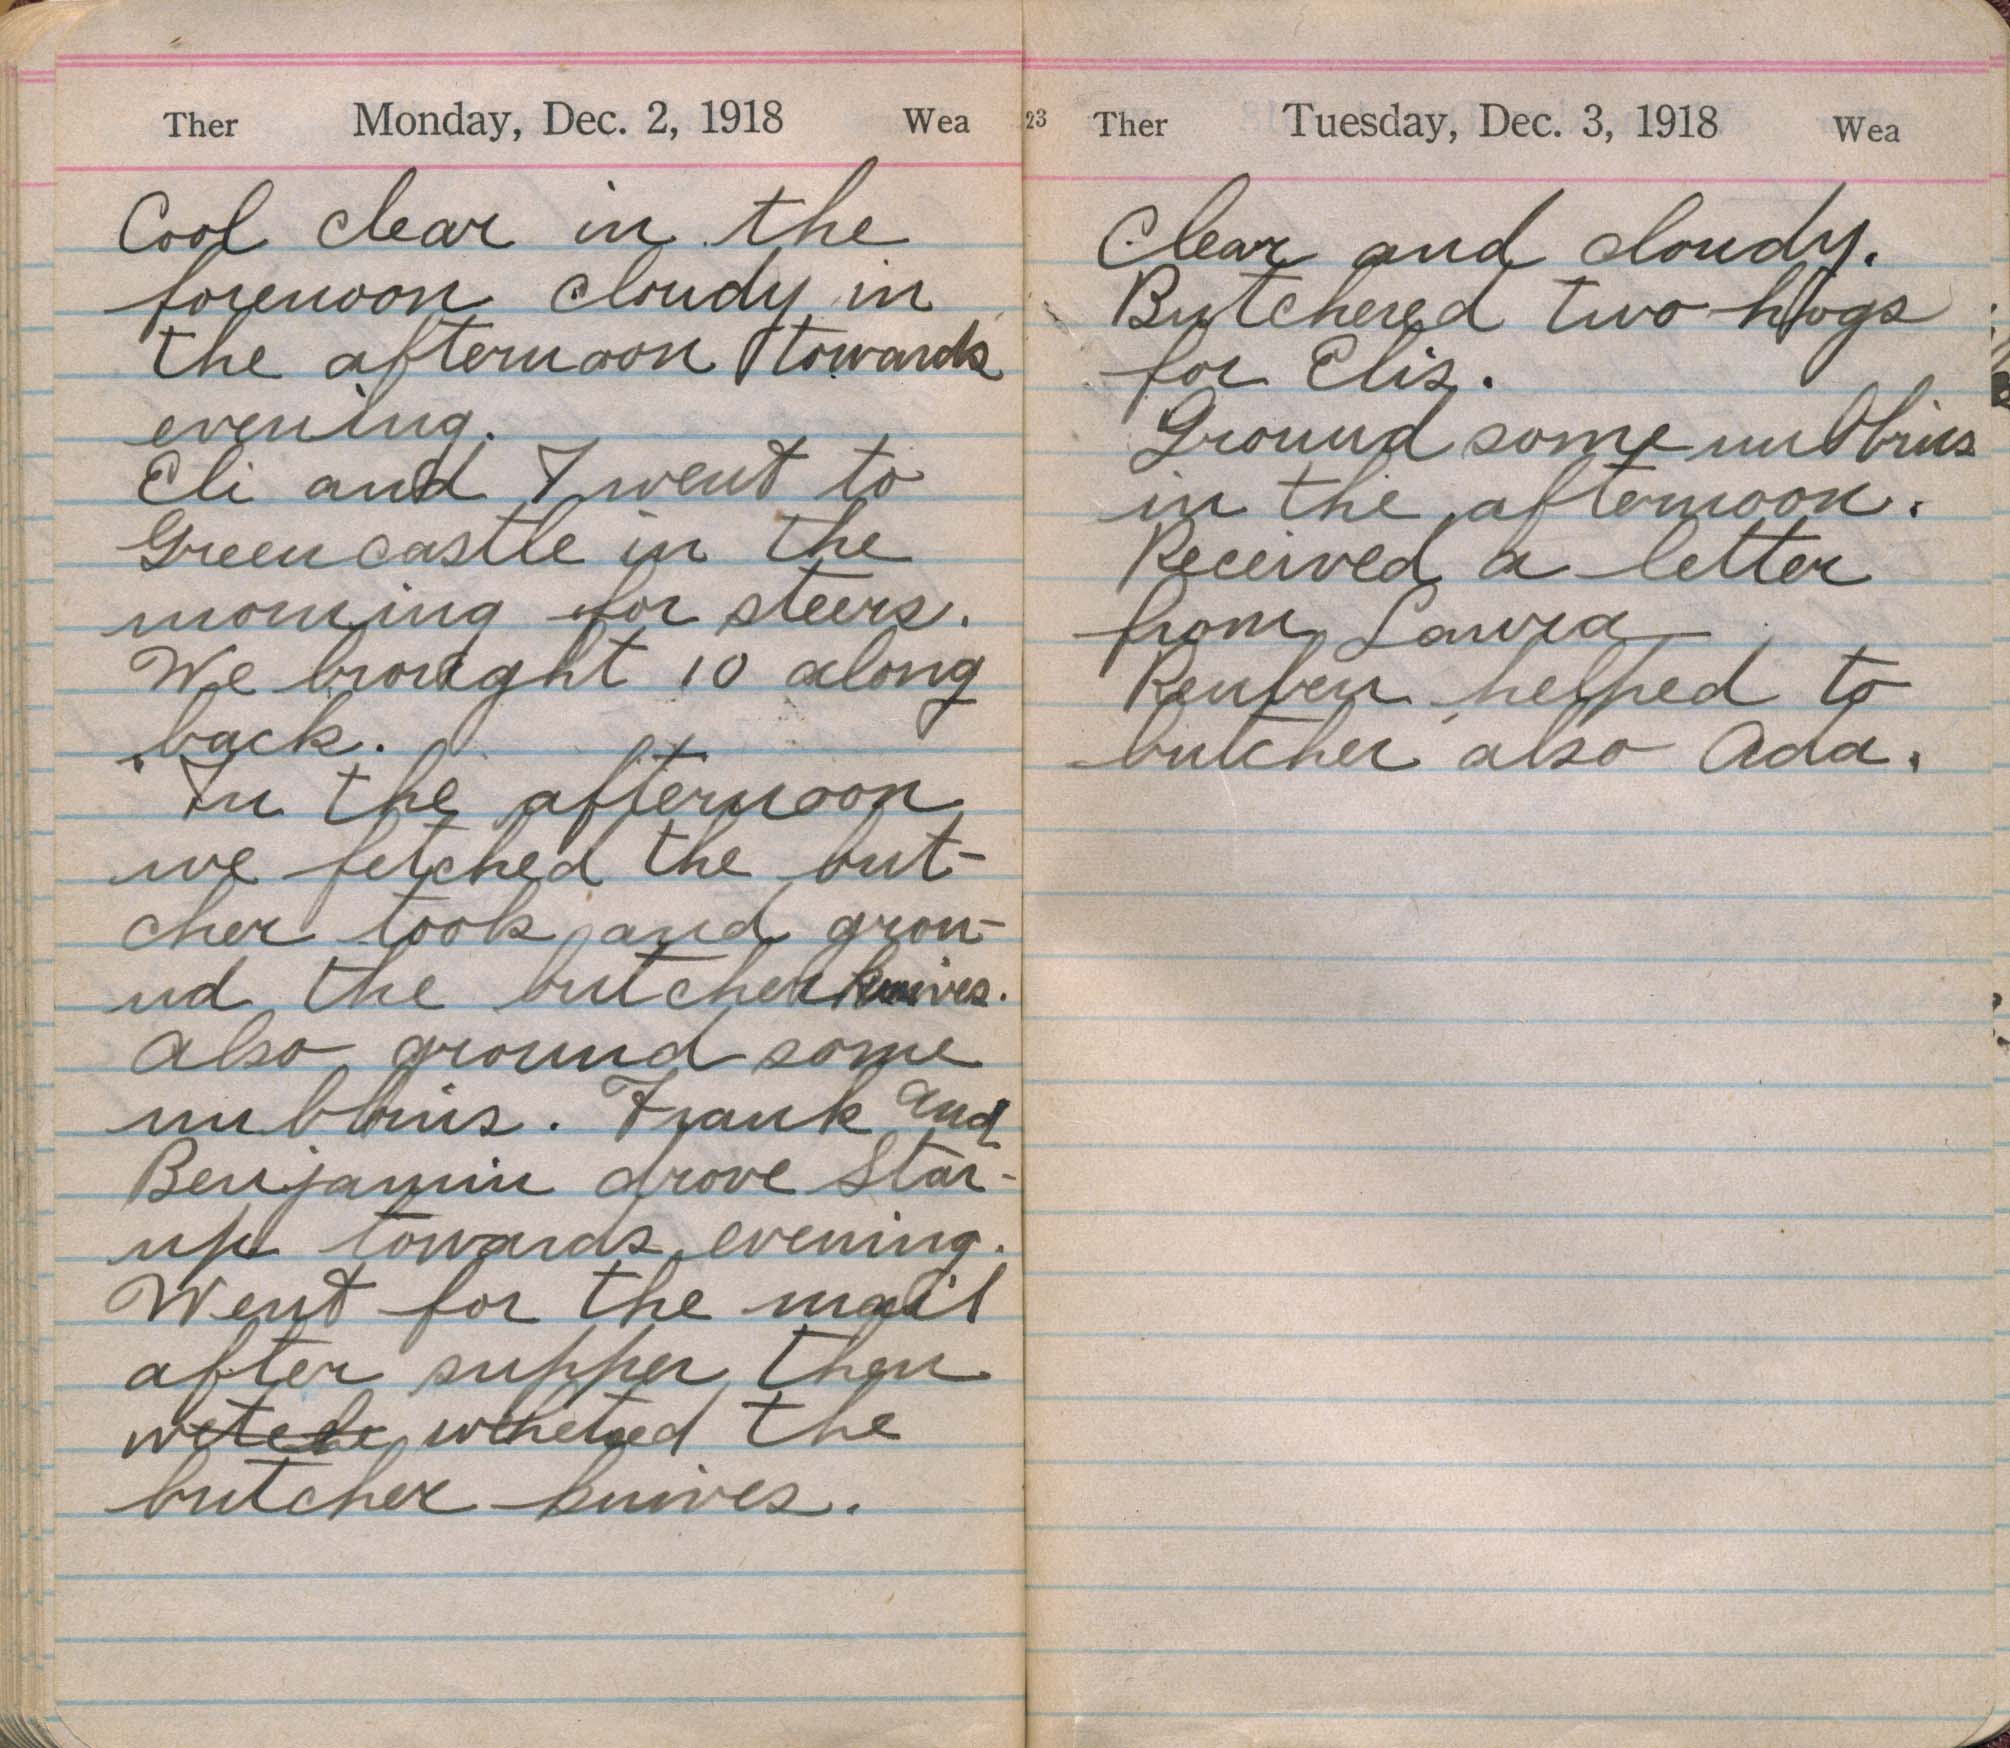 Ther Monday, Dec. 2, 1918 Wea
Cool clear in the
forenoon cloudy in
the afternoon towards
evening.
Eli and I went to
Greencastle in the
morning for steers.
We brought 10 along
back.
In the afternoon
we fetched the but-
cher took and grou-
nd the butcher knives.
Also ground some
nubbins. Frank and
Benjamin drove Star-
up towards evening.
Went for the mail
after supper then
whetted the
butcher knives.
23 Ther Tuesday, Dec. 3, 1918 Wea
Clear and cloudy.
Butchered two hogs
for Elis.
Ground some nubbins
in the afternoon.
Received a letter
from Laura
Reuben helped to
butcher also Ada.